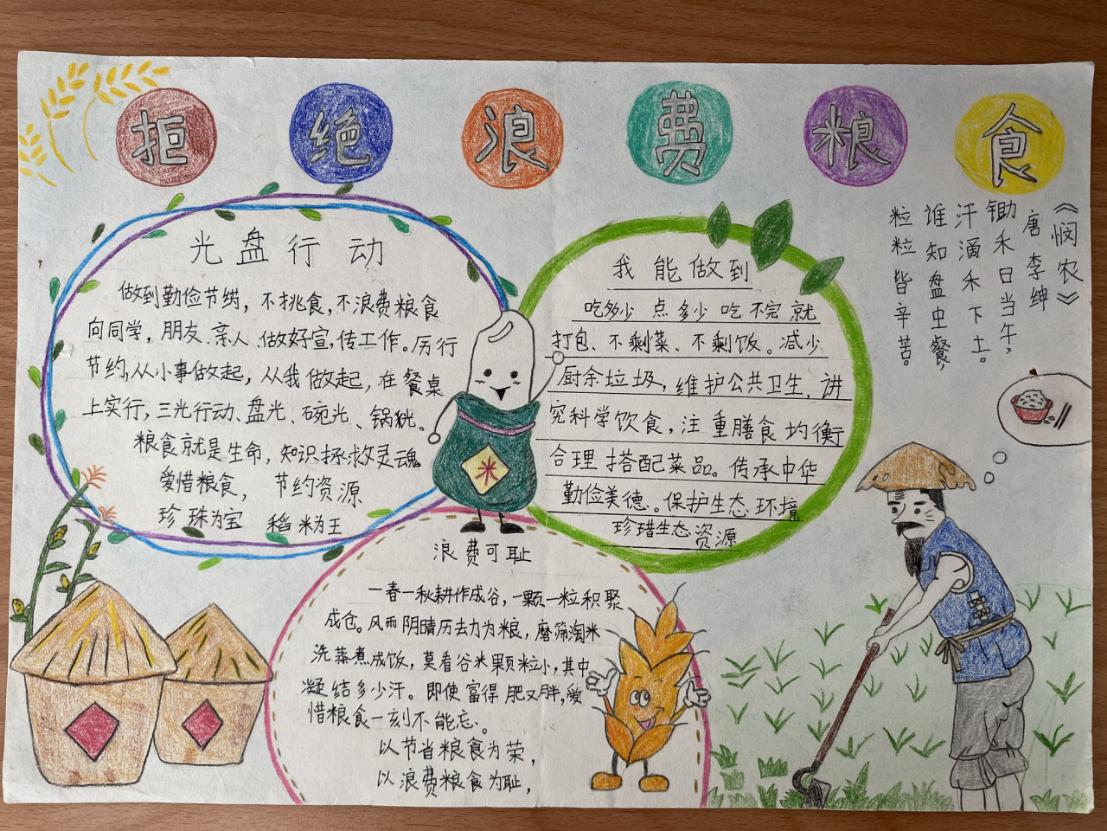 拒绝浪费粮食
光盘行动
做到勤俭节纳，不挑食，不浪费粮食
向同学，朋友、亲人、做好宣，传工作。厉行
节约，从小事做起，从我做起，在餐桌
上实行，三光行动、盘光、碗光、锅铣。
粮食就是生命，知识拯救灵魂
爱惜粮食，节约资源
珍珠为宝 稻米为王
我能做到
吃多少点多少吃不完就
打包、不剩菜、不剩饭。减少
厨余垃圾，维护公共卫生，讲
究科学饮食，注重膳食均衡
合理搭配菜品。传承中华
勤俭美德。保护生态环境
珍惜生态资源
《悯农》
唐 李绅
锄禾日当午，
汗滴禾下土。
谁知盘中餐，
粒粒皆辛苦。
米
浪费可耻
一春一秋耕作成谷，一颗一粒积聚
成仓。风雨阴晴历去为粮，磨筛淘米
洗蒸煮成饭，莫看谷米颗粒小，其中
凝结多少汗。即使富得肥又胖，爱
惜粮食一刻不能忘。
以节省粮食为荣，
以浪费粮食为耻，